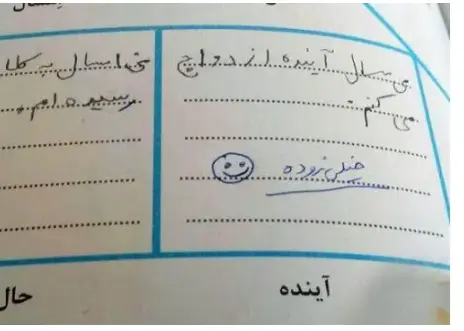 من سال آینده ازدواج
می کنم.
خیلی زوده
من امسال به کلا
رسیده ام.
آینده
حال